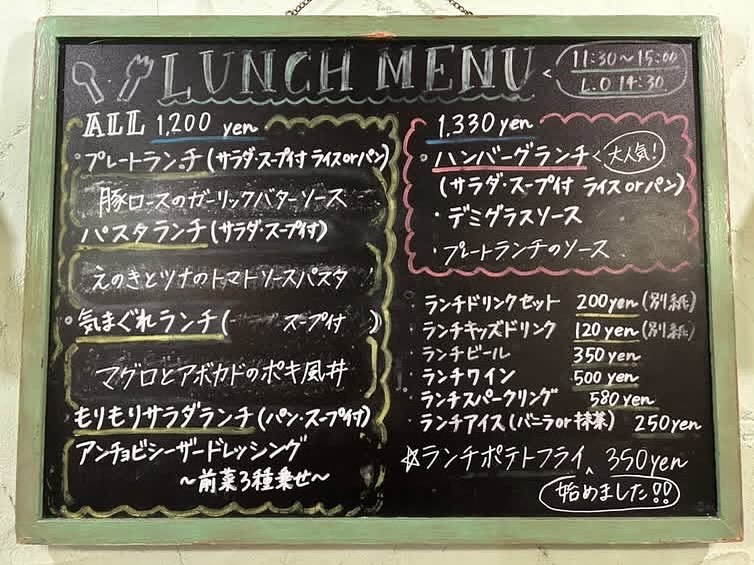 LUNCH MENU
11:30〜15:00
L.O 14:30
ALL 1,200 yen
・プレートランチ(サラダ・スープ付 ライスorパン)
豚ロースのガーリックバターソース
パスタランチ(サラダ・スープ付)
えのきとツナのトマトソースパスタ
・気まぐれランチ( スープ付 )
マグロとアボカドのポキ風丼
もりもりサラダランチ(パン・スープ付)
アンチョビシーザードレッシング
〜前菜3種乗せ〜
1,330yen
・ハンバーグランチ < 大人気!
(サラダ・スープ付 ライスorパン)
・デミグラスソース
・プレートランチのソース
・ランチドリンクセット 200yen(別紙)
・ランチキッズドリンク 120yen(別紙)
・ランチビール 350yen
・ランチワイン 500yen
・ランチスパークリング 580yen
・ランチアイス(バニラor抹茶) 250yen
☆ランチポテトフライ 350yen
始めました!!